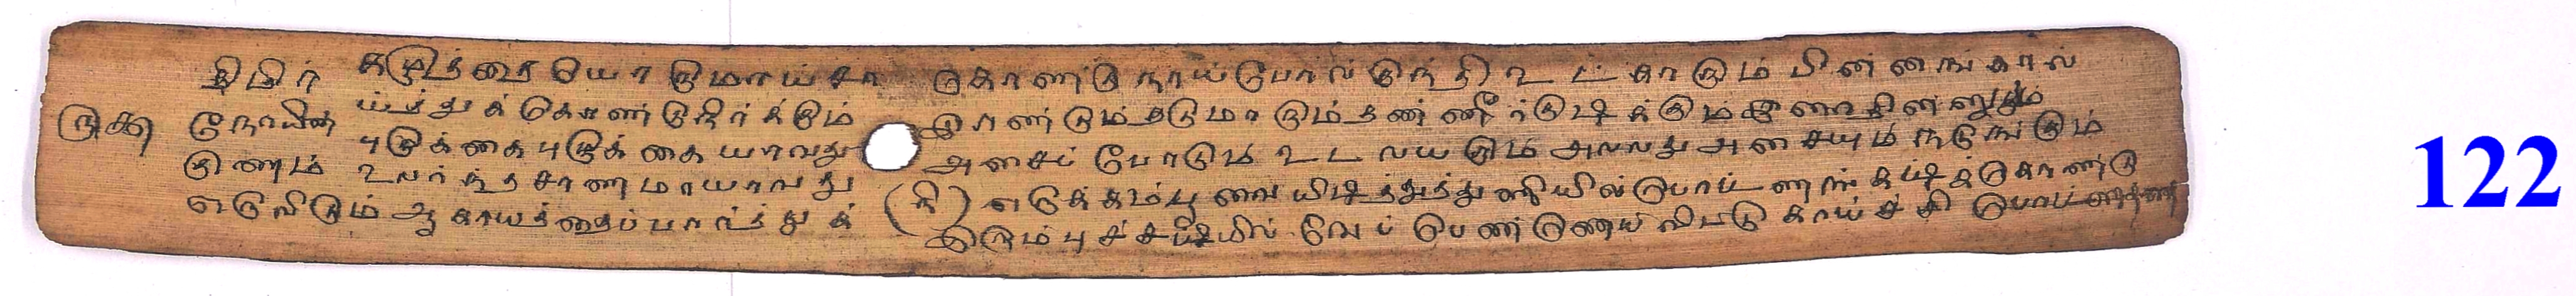 திமிர் கழுத்தை யொருமாய்சா கொண்டு நாய்போல் குந்தி உட்காரும் பின்னங்கால்
நோயின் ய்த்துக் கொண்டு நிர்க்கும் இரண்டும் தடுமாறும் தண்ணீர் குடிக்கும்
குணம் புடுக்கை புடுக்கை யாவது அசைப் போடும் உடல் அல்லது அசையும் நடுங்கும்
உலர்ந்த சாணமாயாவது (கி) எடுக்கம்பூவை யிடித்துத் துணியில் பொட்டணங் கட்டிக் கொண்டு
எடுவிடும் ஆகாயத்தைப் பார்த்துக் இரும்புச் சட்டியில் வேப்பெண்ணெய் விட்டு காய்ச்சி
122